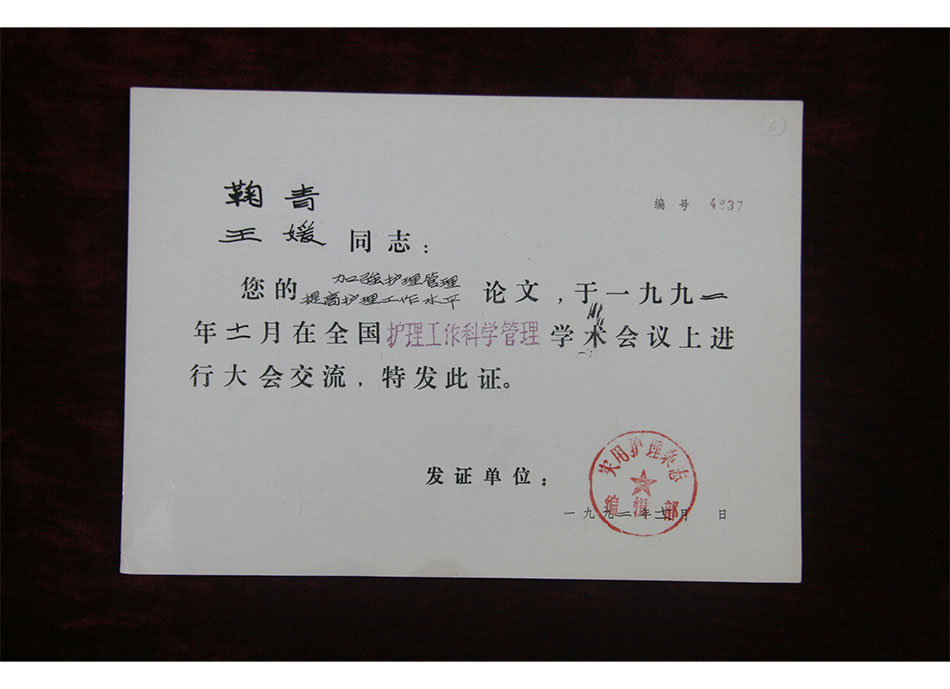 6
鞠青
编号 4937
王媛 同志：
您的 加强护理管理
提高护理工作水平 论文，于一九九二
年十二月在全国护理工作科学管理学术会议上进
行大会交流，特发此证。
发证单位：
实用护理杂志
编辑部
一九九二年十二月 日